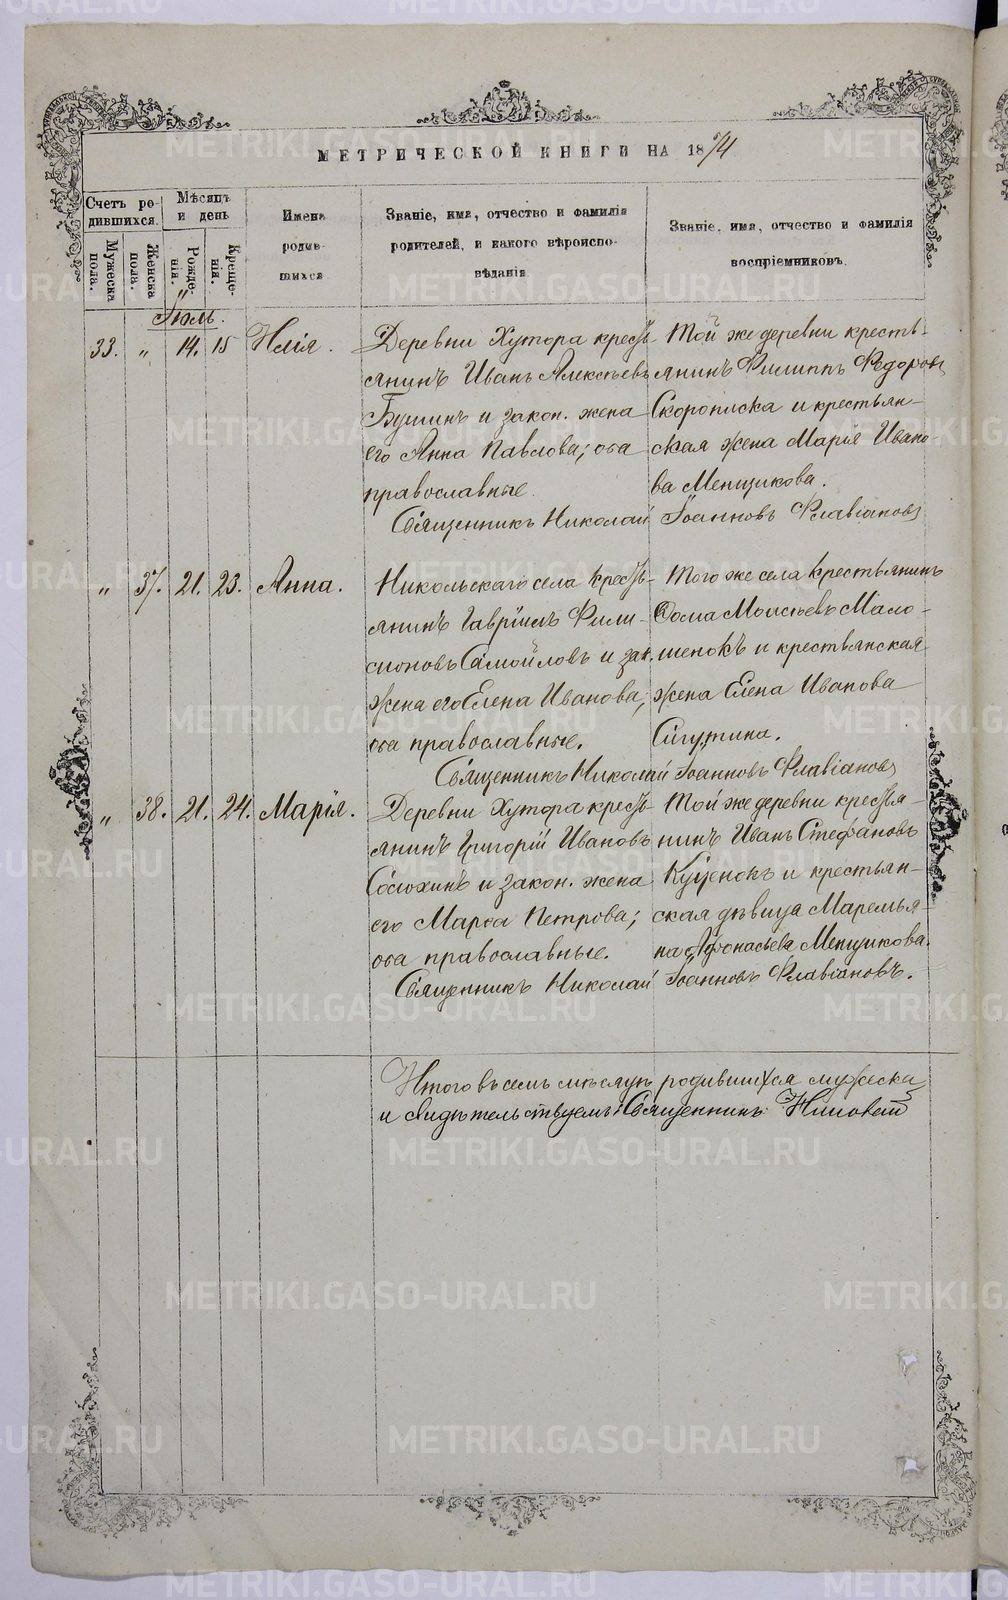 МЕТРИЧЕСКОЙ КНИГИ НА 1874
Счетъ ро-
дившихся.
Мѣсяцъ
и день
Мужеска
пола.
Женска
пола.
Рожде-
нія.
Креще-
нія.
Имена
родив-
шихся
Званіе, имя, отчество и фамилія
родителей, и какого вѣроиспо-
вѣданія
Званіе, имя, отчество и фамилія
воспріемниковъ.
Іюль.
33. „ 14. 15 Илія.
Деревни Хутора кресть-
янинъ Иванъ Алексѣевъ
и закон. жена
его Анна Павлова; оба
православные.
Той же деревни кресть-
янинъ Филиппъ Ѳедоровъ
Скорописка и крестьян-
ская жена Марія Ивано-
ва Менщикова.
Священникъ Николай Іоанновъ Флавіановъ
„ 37. 21. 23. Анна.
Никольскаго села кресть-
янинъ Гавріилъ Фили-
моновъ Самойловъ и зак.
жена его Елена Иванова;
оба православные.
Того же села крестьянинъ
Ѳома Моисѣевъ Мало-
шенокъ и крестьянская
жена Елена Иванова
Сигутина.
Священникъ Николай Іоанновъ Флавіановъ
„ 38. 21. 24. Марія.
Деревни Хутора кресть-
янинъ Григорій Ивановъ
Сосюхинъ и закон. жена
его Марѳа Петрова;
оба православные.
Той же деревни крестья-
нинъ Иванъ Стефановъ
Куценокъ и крестьян-
ская дѣвица Маремья-
на Афонасьева Менщикова.
Священникъ Николай Іоанновъ Флавіановъ.
Итого въ семъ мѣсяцѣ родившихся мужеска
и свидѣтельствуемъ: Священникъ Николай
METRIKI.GASO-URAL.RU